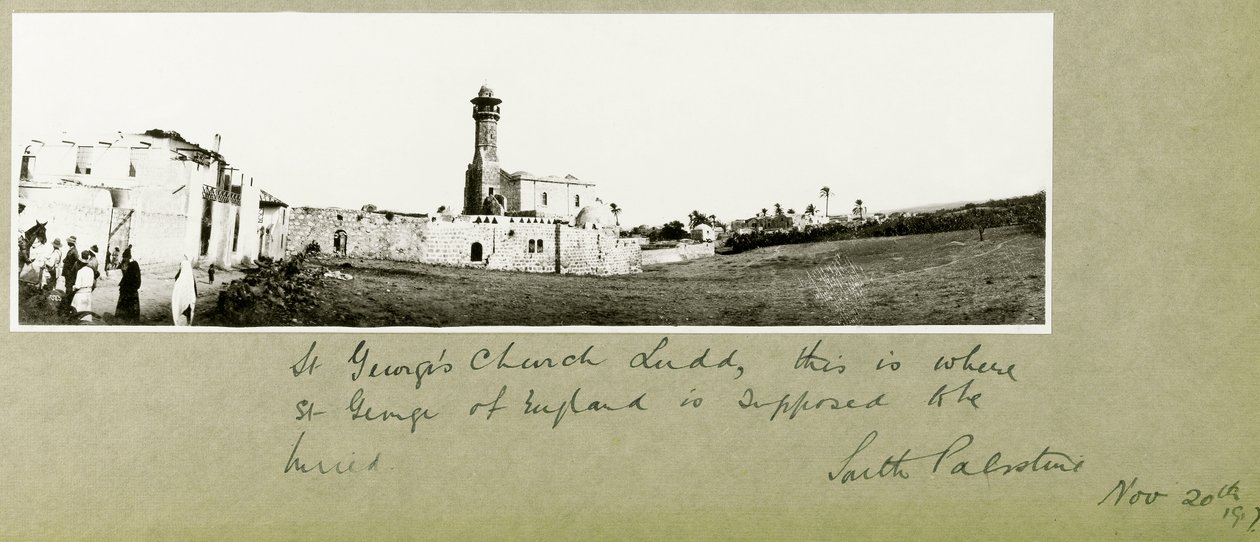 St George's Church Ludd, this is where
St George of England is supposed to be
buried.
South Palestine
Nov 20th
1917